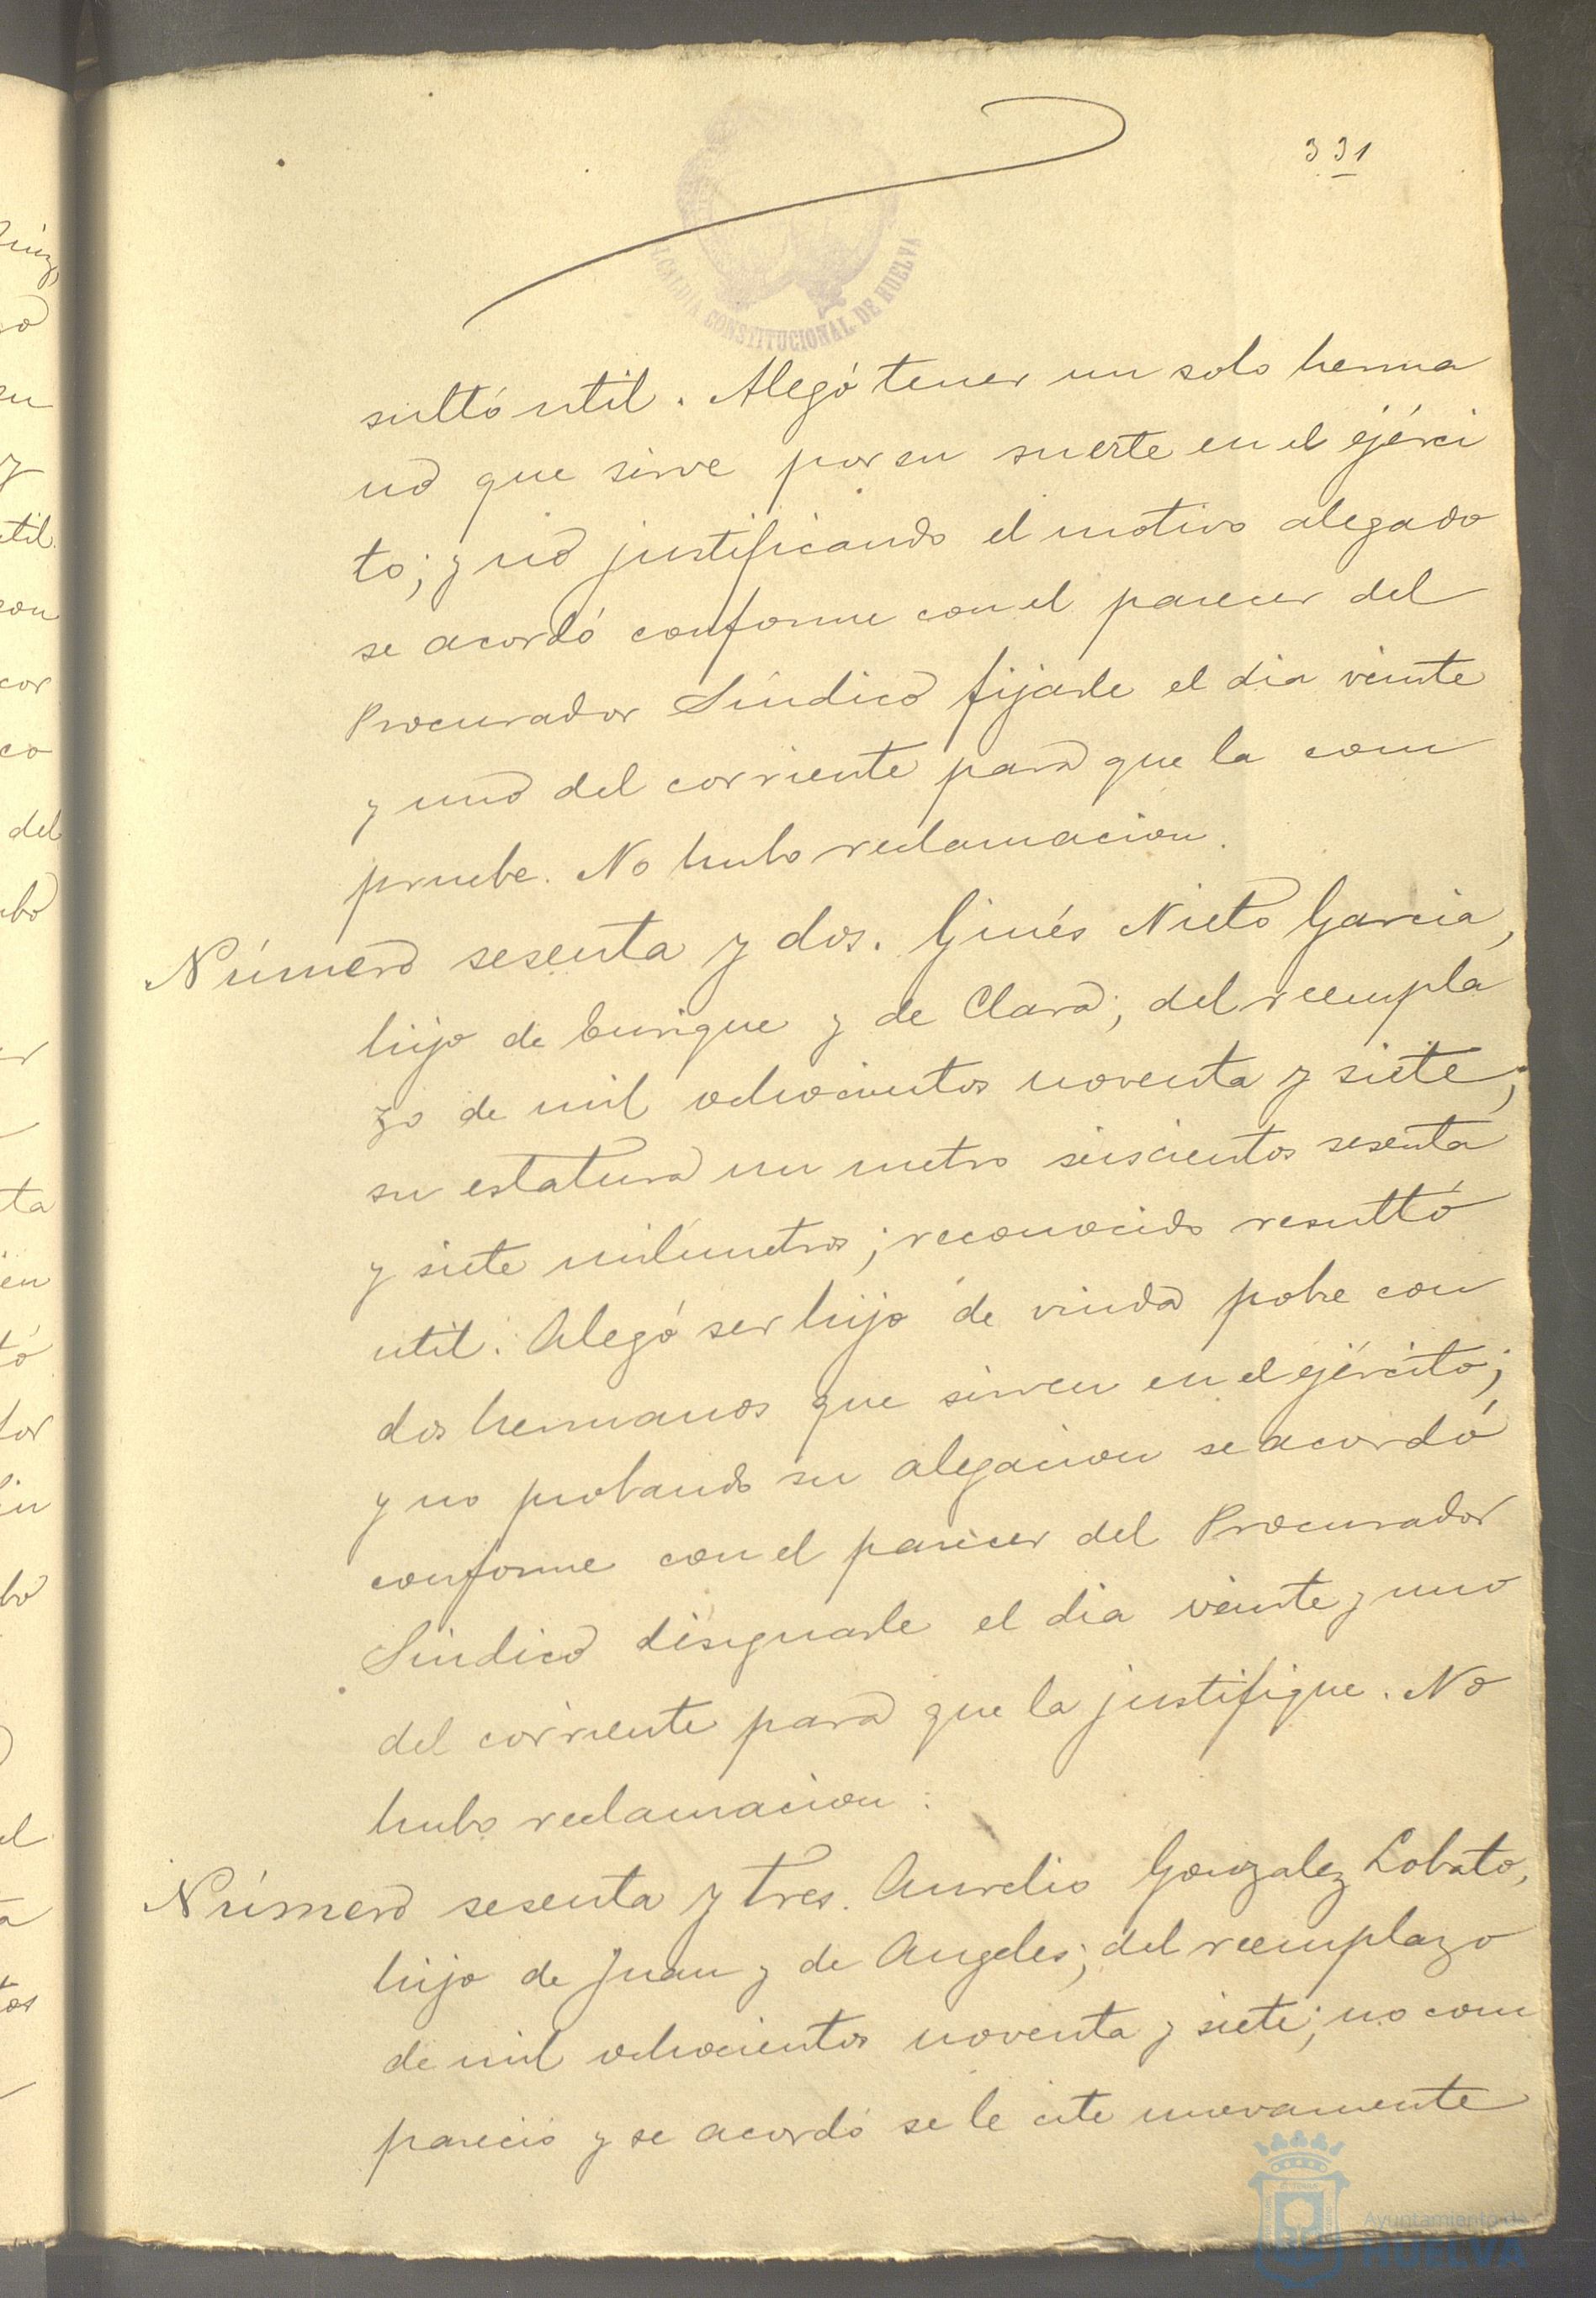 331
ALCALDIA CONSTITUCIONAL DE HUELVA
sultó util. Alegó tener un solo herma
no que sirve por su suerte en el ejérci
to; y no justificando el motivo alegado
se acordó conforme con el parecer del
Procurador Síndico fijarle el dia veinte
y uno del corriente para que la com
pruebe. No hubo reclamacion.
Número sesenta y dos. Ginés Nieto Garcia,
hijo de Enrique y de Clara; del reempla
zo de mil ochocientos noventa y siete;
su estatura un metro seiscientos sesenta
y siete milímetros; reconocido resultó
util. Alegó ser hijo de viuda pobre con
dos hermanos que sirven en el ejército;
y no probando su alegacion se acordó
conforme con el parecer del Procurador
Sindico designarle el dia veinte y uno
del corriente para que la justifique. No
hubo reclamacion.
Número sesenta y tres. Aurelio Gonzalez Lobato,
hijo de Juan y de Angeles; del reemplazo
de mil ochocientos noventa y siete; no com
pareció y se acordó se le cite nuevamente
Ayuntamiento de
HUELVA